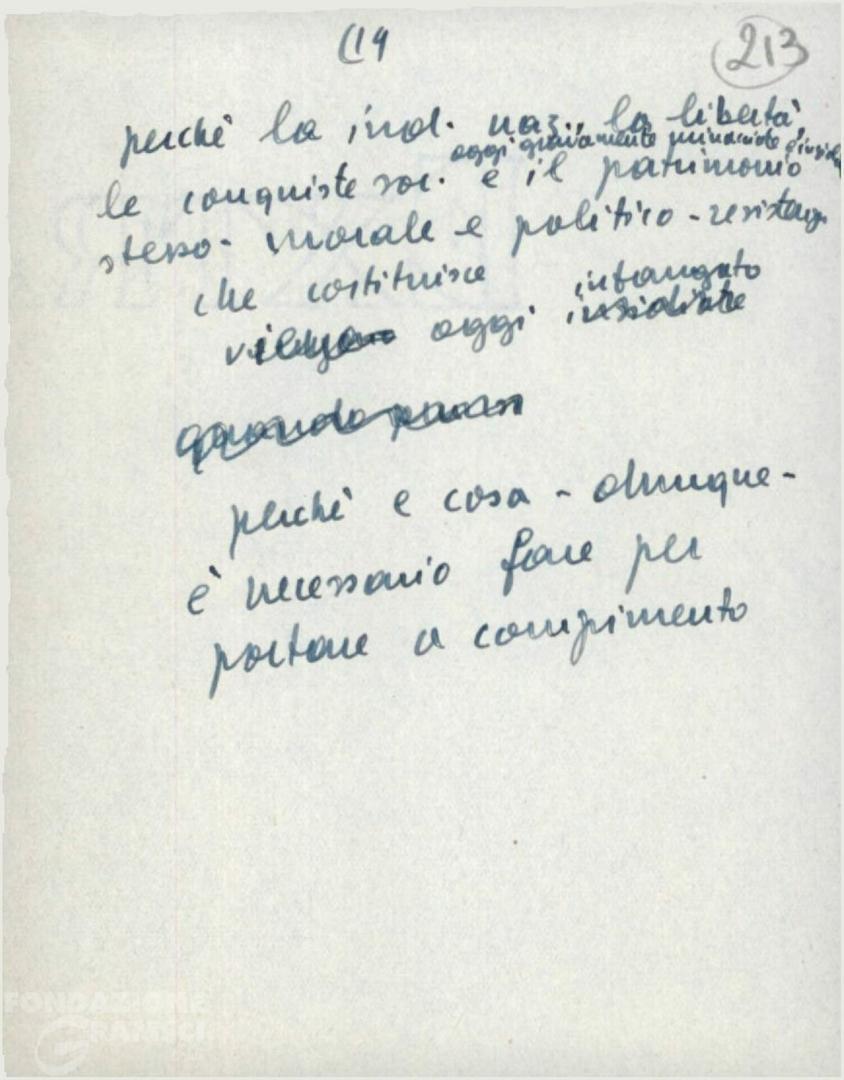 C19
213
perchè la ind. naz., la libertà,
oggi gravamente minacciate
le conquiste soc. e il patrimonio
stesso - morale e politico -
che costituisce
infangato
oggi
perchè e cosa - dunque -
è necessario fare per
portare a compimento
FONDAZIONE
GRAMSCI